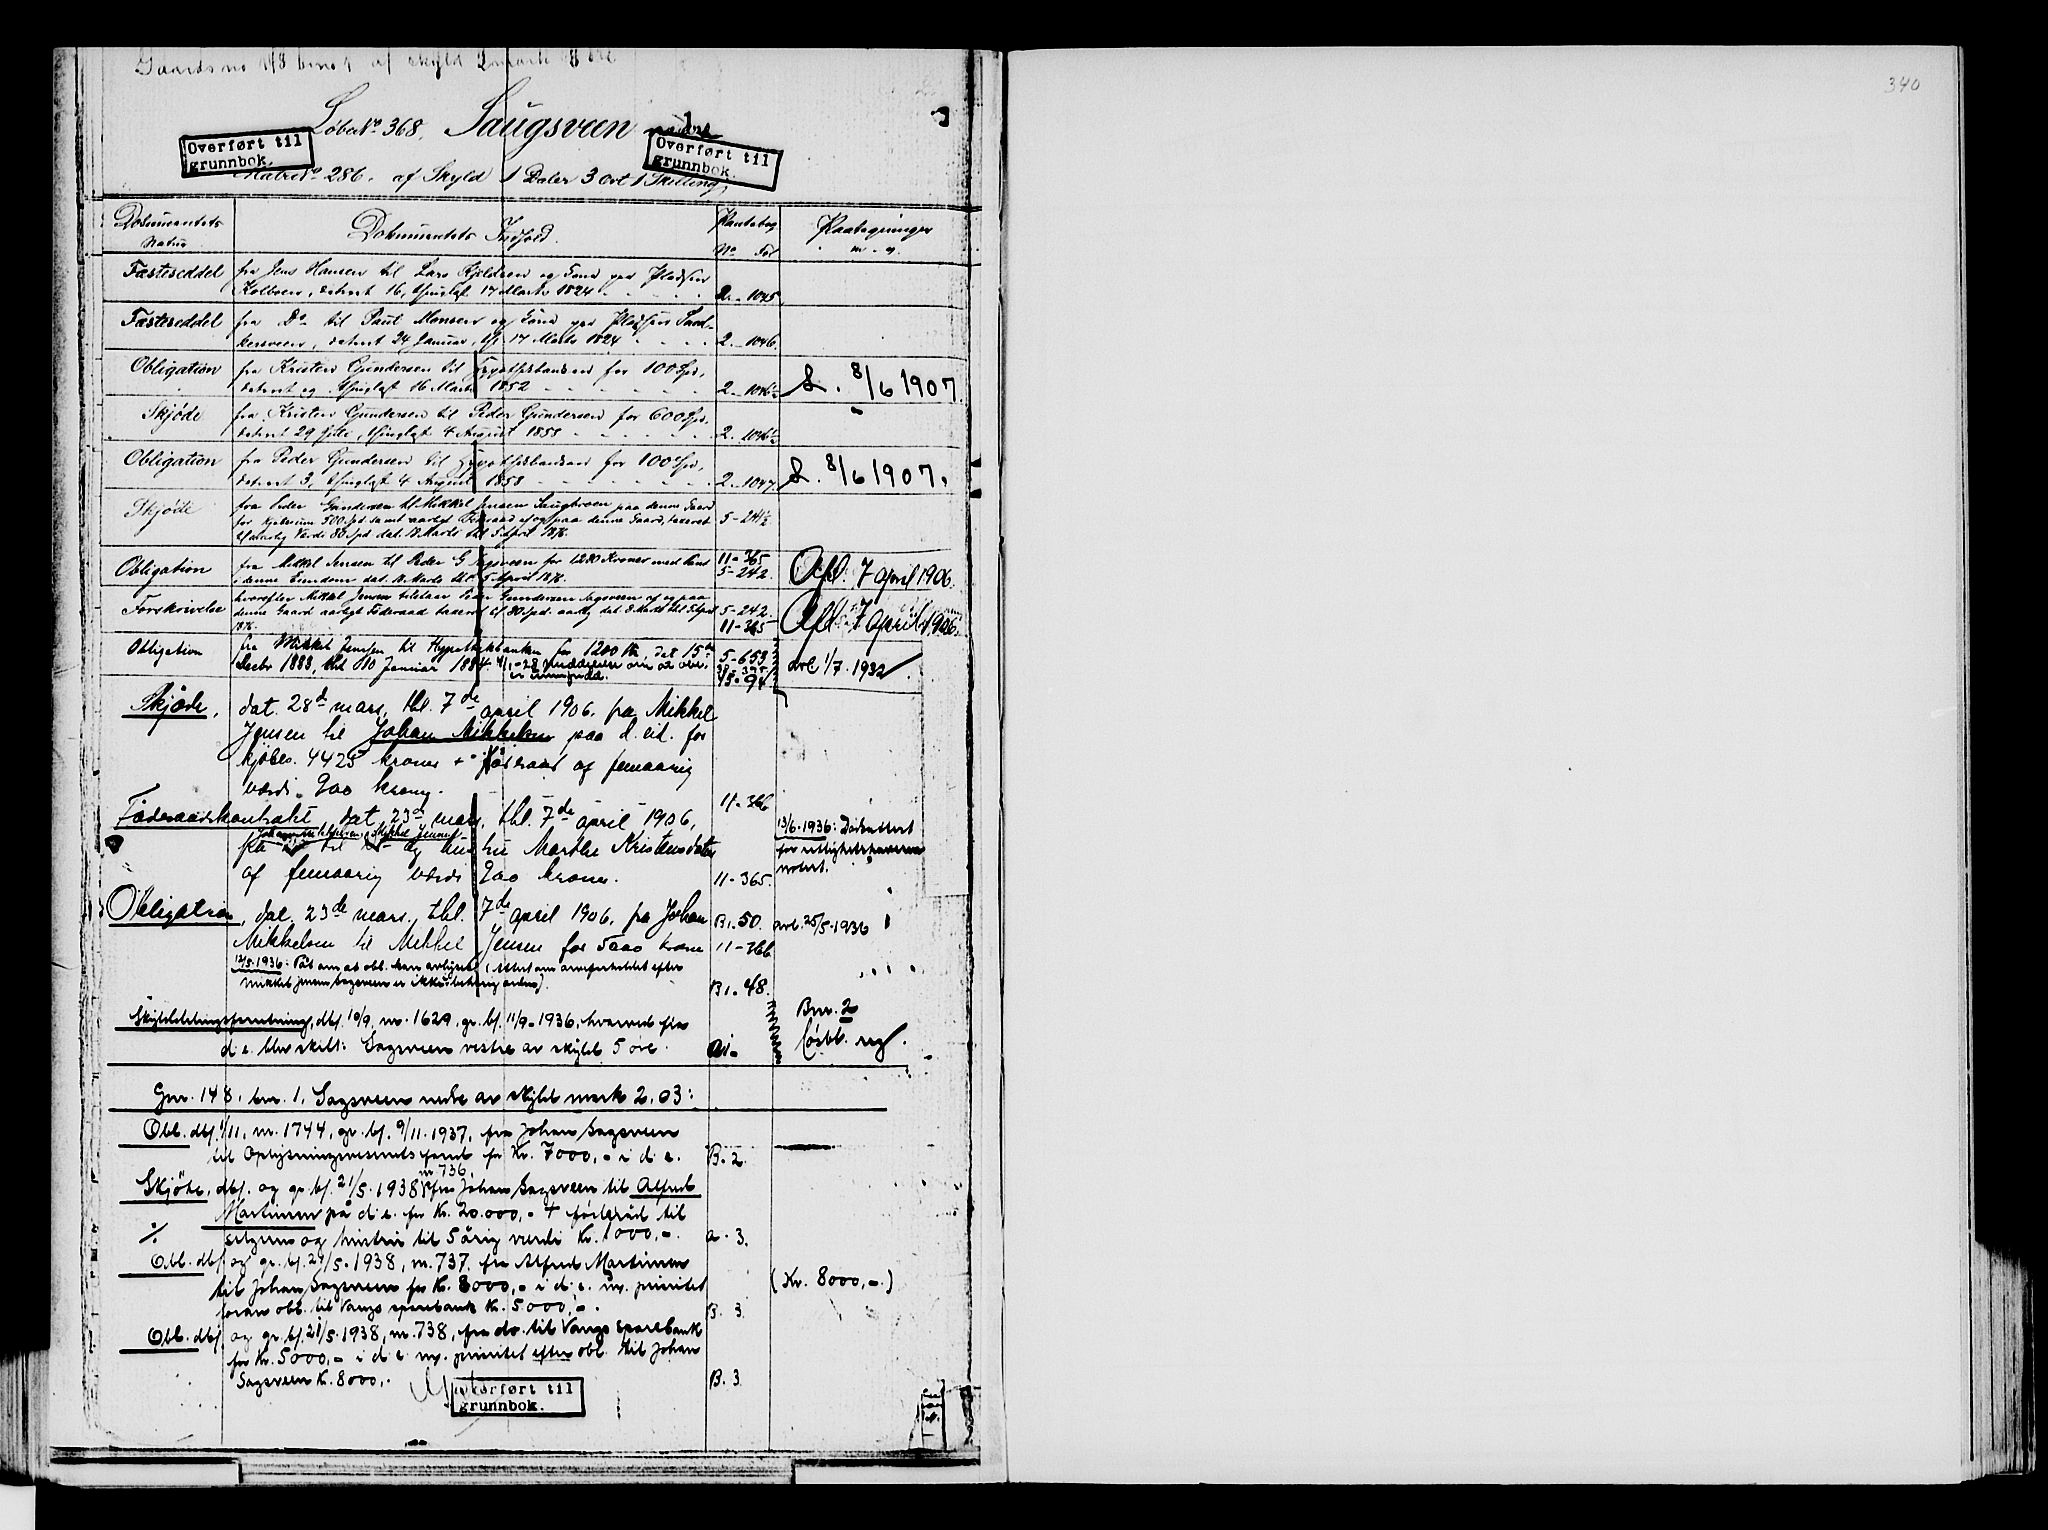 Gaardsno 148 bno 1 af skyld 2 mark 8 øre
340
Løbe No 368. Saugsveen nedre
Overført til
grunnbok.
Overført til
grunnbok.
Matr No 286. af Skyld 1 Daler 3 Ort 1 Skilling,
Dokumentets Natur
Dokumentets Indhold.
Pantebog
No Fol
Paategninger
m. v.
Fæsteseddel fra Jens Hansen til Lars Kjeldsen og Kone paa Pladsen
dateret 16, thinglyst 17 Marts 1824 2 - 1045
Fæsteseddel fra Do til Paul Monsen og Kone paa Pladsen
dateret 24 Januar, tgl 17 Marts 1824 2 - 1046.
Obligation fra Kristen Gundersen til Hypothekbanken for 100 Spd,
dateret og thinglyst 16 Marts 1852 2 - 1046½ S. 8/6 1907.
Skjøde fra Kristen Gundersen til Peder Gundersen for 600 Spd.
dateret 29 Juli, thinglyst 4 August 1853 2 - 1046½
Obligation fra Peder Gundersen til Hypothekbanken for 100 Spd,
dateret 3, thinglyst 4 August 1853 2 - 1047. S. 8/6 1907.
Skjøde fra Peder Gundersen til Mikkel Jensen Saugsveen paa denne Gaard
for Kjøbesum 500 Spd samt aarligt Føderaad af og paa denne Gaard, taxeret
Værdi 80 Spd dat. 18 Marts thl 5 April 1876. 5 - 241½
Obligation fra Mikkel Jensen til Peder G. Sagsveen for 1280 Kroner med Pant
i denne Eiendom dat. 18 Marts thl. 5 April 1876. 11 - 365 5 - 242. Afl. 7 april 1906.
Forskrivelse hvorefter Mikkel Jensen tilstaar Peder Gundersen Sagsveen af og paa
denne Gaard aarligt Føderaad taxeret til 80 Spd. aarlig dat. 18 Marts thl 5 April
1876. 5 - 242. 11 - 365 Afl. 7 april 1906.
Obligation fra Mikkel Jensen til Hypothekbanken for 1200 Kr, dat 15de
Decbr 1883, thl 10 Januar 1884. 5 - 653 avl 1/7. 1932
Skjøde, dat. 28de mars, tbl. 7de april 1906. fra Mikkel
Jensen til Johan Mikkelsen paa d. eid. for
kjøbes. 4425 kroner + føderaad af femaarig
værdi 900 kroner. 11 - 366
Føderaadskontrakt dat. 23de mars, tbl. 7de april 1906,
Johan Mikkelsen Mikkel Jensen
fra til og hustru Marthe Kristensdatter
af femaarig værdi 900 kroner. 11 - 365.
13/6. 1936: Dødsattest
for rettighetshaveren
notert.
Obligation, dat. 23de mars, tbl. 7de april 1906, fra Johan B1. 50. avl. 25/5. 1936
Mikkelsen til Mikkel Jensen for 5000 kroner 11 - 366
12/5. 1936: Påt om at obl. kan avlyses (Attest om arveforholdet efter
Mikkel Jensen Sagsveen er ikke betryggende). B1. 48.
Skylddelingsforretning, dbf. 10/9, nr. 1629, gr. bf. 11/9 - 1936, hvorved fra
d. e. blev skilt: Sagsveen vestre av skyld 5 øre.
Bnr. 2
løsbl. reg.
Gnr. 148. bnr. 1. Sagsveen nedre av skyld mark 2.03:
Obl. dbf. 1/11, nr. 1744, gr. bf. 9/11. 1937, fra Johan Sagsveen
til Oplysningsvesenets fond for Kr. 7000,- i d. e. B. 2.
nr. 736,
Skjöte, dbf. og gr. bf. 21/5. 1938 fra Johan Sagsveen til Alfred
Martinsen på d. e. for Kr. 20.000,- + föderåd til
selgeren og hustru til 5 årig verdi Kr. 1000,-. a. 3.
Obl. dbf. og gr. bf. 21/5. 1938, nr. 737. fra Alfred Martinsen
til Johan Sagsveen for Kr. 8000,- i d. e. m. prioritet
foran obl. til Vangs sparebank Kr. 5.000,-. B. 3.
(Kr. 8000,-.)
Obl. dbf. og gr. bf. 21/5. 1938, nr. 738, fra do. til Vangs sparebank
for Kr. 5000,- i d. e. m. prioritet efter obl. til Johan
Sagsveen Kr. 8000,-. B. 3.
Overført til
grunnbok.